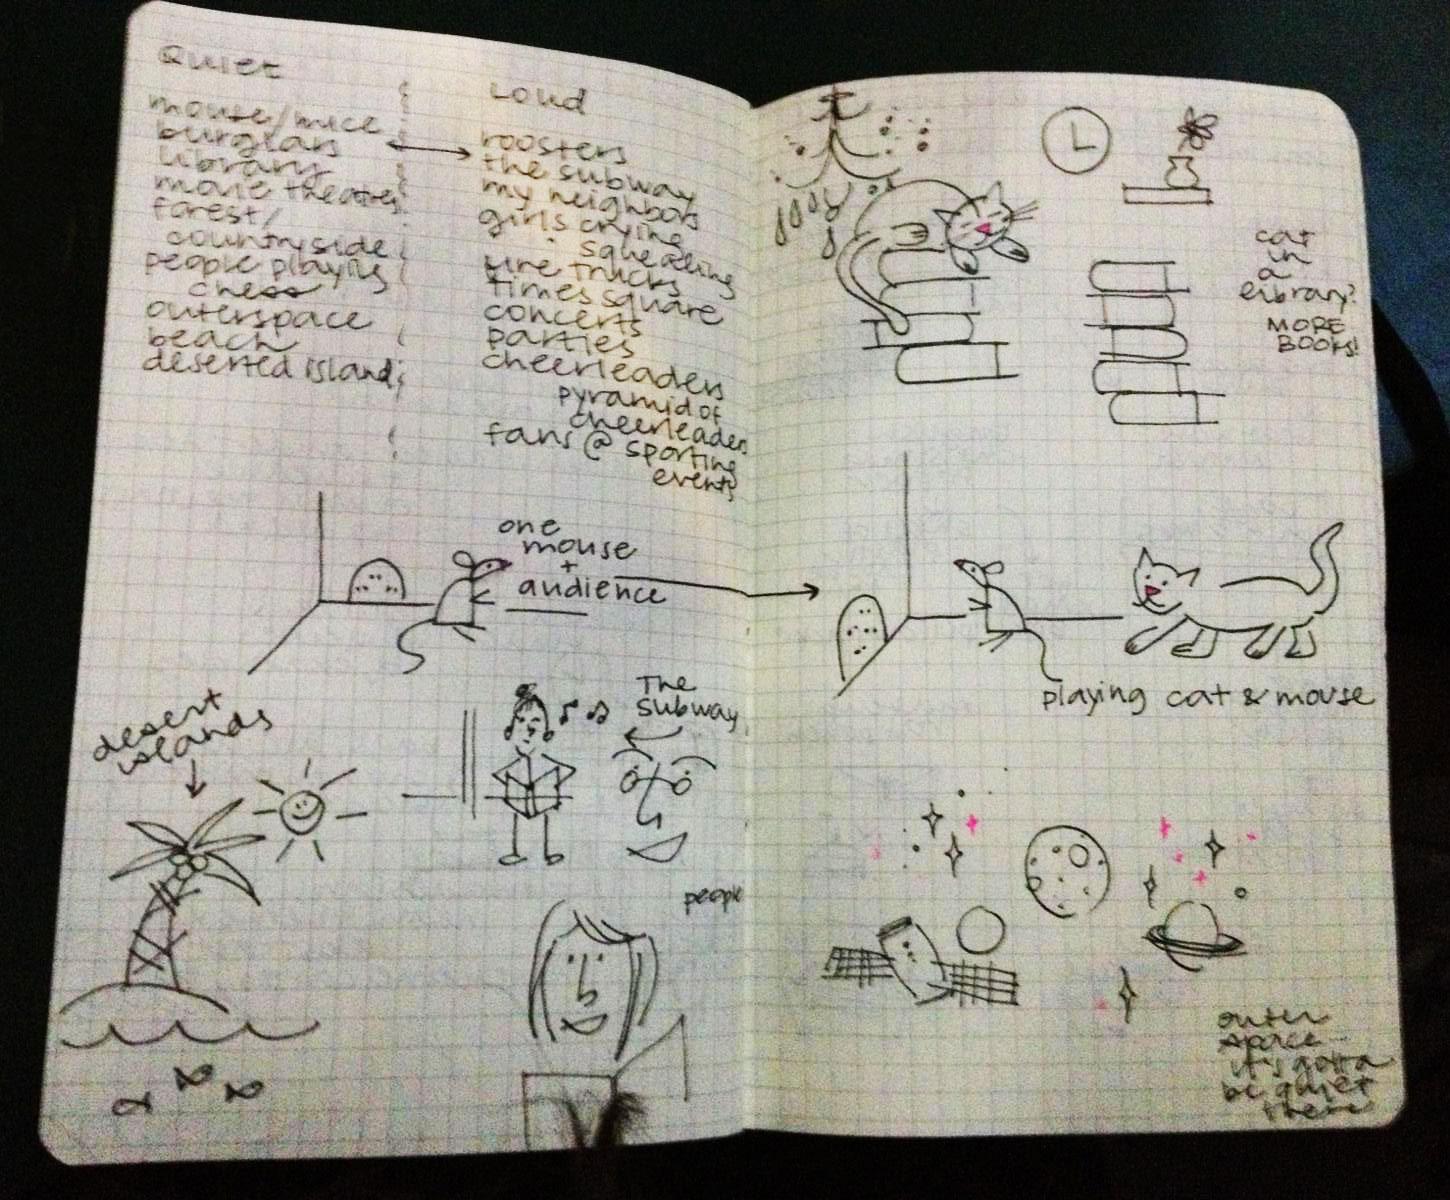 Quiet
mouse/mice
burglars
library
movie theatres
forest/
countryside
people playing
chess
outerspace
beach
deserted island
Loud
roosters
the subway
my neighbors
girls crying
squealing
fire trucks
times square
concerts
parties
cheerleaders
pyramid of
cheerleaders
fans @ sporting
events
one
mouse
+
audience
desert
islands
The
Subway
people
cat
in
a
library?
MORE
BOOKS!
playing cat & mouse
outer
space...
it's gotta
be quiet
there